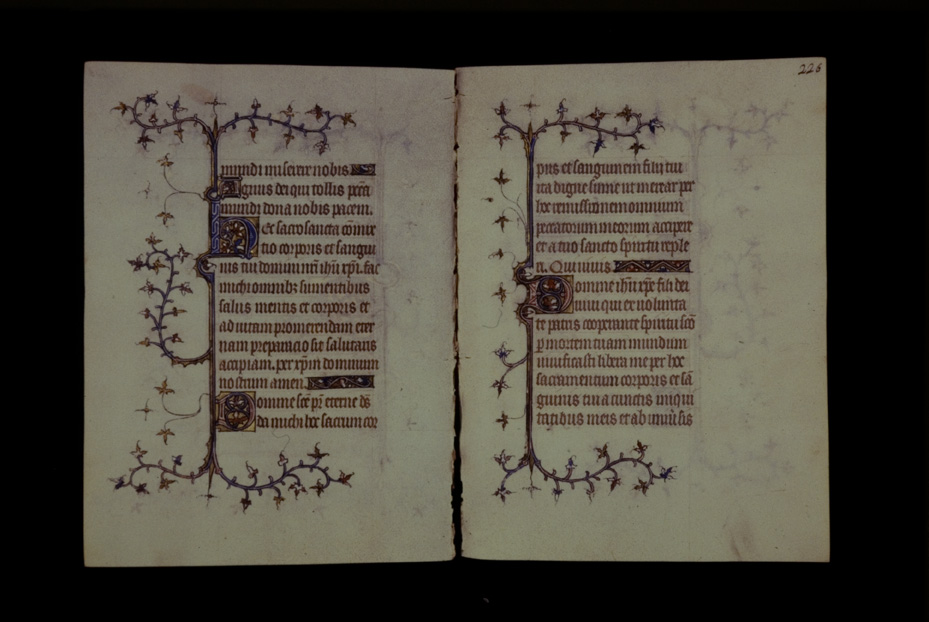 mundi miserere nobis
Agnus dei qui tollis pctā
mundi dona nobis pacem.
Hec sacrosancta cōmix
tio corporis et sangui
nis tui domini nrī ihū xpī. fac
michi omnibz sumentibus
salus mentis et corporis et
ad uitam promerendam eter
nam preparacio sit salutaris
accipiam. per xpm dominum
nostrum amen.
Domine scē pr eterne ds
da michi hoc sacrum cor
226
pus et sanguinem filii tui
ita digne sume ut merear per
hoc remissionem omnium
peccatorum meorum accipere
et a tuo sancto spiritu reple
ri. Qui uiuis
Domine ihū xpe fili dei
uiui qui ex uolunta
te patris cooperante spiritu scō
p mortem tuam mundum
uiuificasti libera me per hoc
sacramentum corporis et sā
guinis tui a cunctis iniqui
tatibus meis et ab